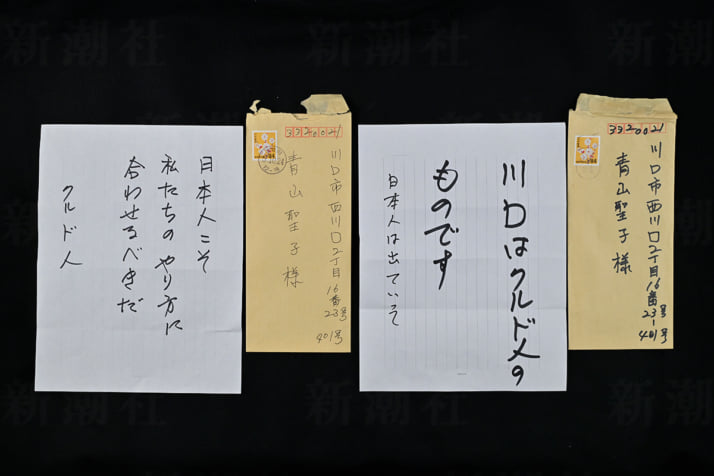 新潮社
新潮社
新潮社
日本人こそ
私たちの やり方に
合わせるべきだ
クルド人
3320021
川口市西川口2丁目16番23号
401号
青山聖子様
川口はクルド人の
ものです
日本人は出ていって
3320021
川口市西川口2丁目16番23号
-401号
青山聖子様
新潮社
新潮社
新潮社